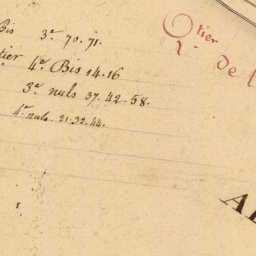 Bis 3e 70. 71.
tier 4e Bis 14. 16
3e nuls 37. 42. 58.
4e nuls 21. 32. 44.
Qtier
de
A